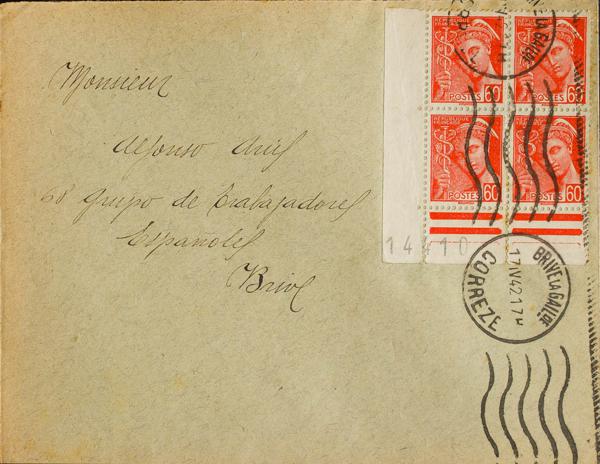 Monsieur
Alfonso
68 Grupo de Trabajadores
Españoles
Brive
REPUBLIQUE FRANÇAISE
POSTES 60
REPUBLIQUE FRANÇAISE
POSTES 60
REPUBLIQUE FRANÇAISE
POSTES 60
REPUBLIQUE FRANÇAISE
POSTES 60
14 10
BRIVE LA GAILDE
17 IV 42 17H
CORREZE